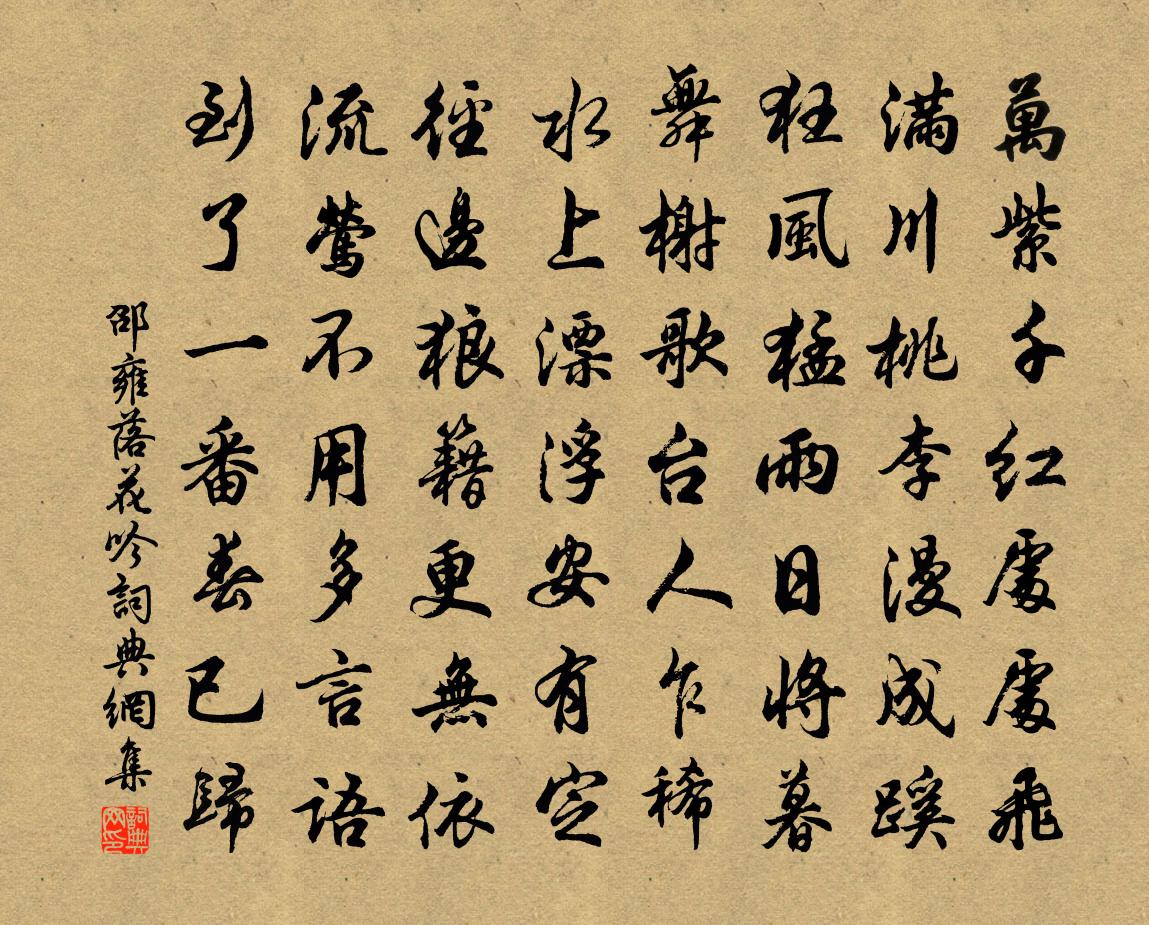 萬紫千红處處飛
滿川桃李漫成蹊
狂風猛雨日將暮
舞榭歌台人乍稀
水上漂浮安有定
徑邊狼籍更無依
流鶯不用多言語
到了一番春已歸
邵雍落花吟詞典網集
詞典网印